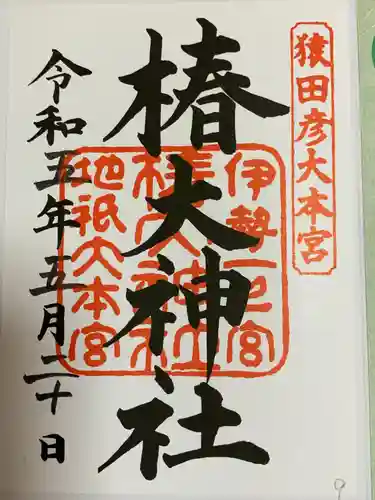 猿田彦大本宮
伊勢一之宮
椿大神社
地祇大本宮
椿大神社
令和五年五月二十日